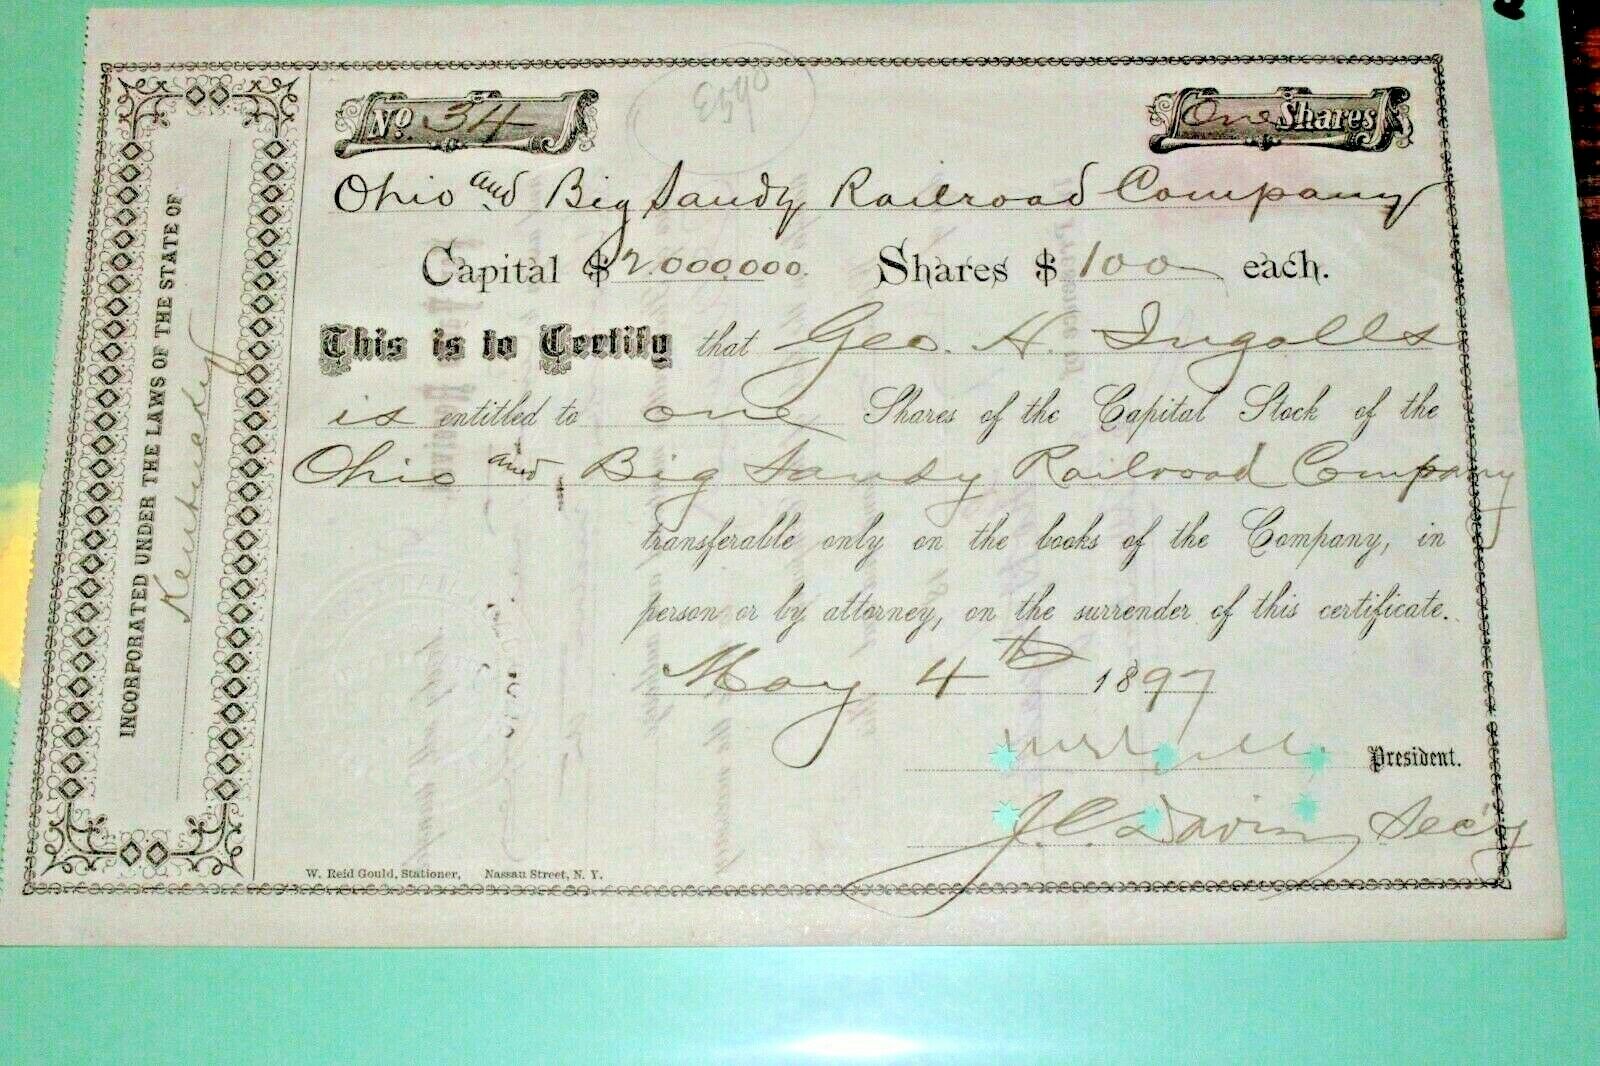 INCORPORATED UNDER THE LAWS OF THE STATE OF
Kentucky
No. 34
One Shares
Ohio and Big Sandy Railroad Company
Capital $2.000.000. Shares $100 each.
This is to Certify that Geo. H. Ingalls
is entitled to one Shares of the Capital Stock of the
Ohio and Big Sandy Railroad Company
transferable only on the books of the Company, in
person or by attorney, on the surrender of this certificate.
May 4th 1897
President.
Secy
W. Reid Gould, Stationer, Nassau Street, N. Y.